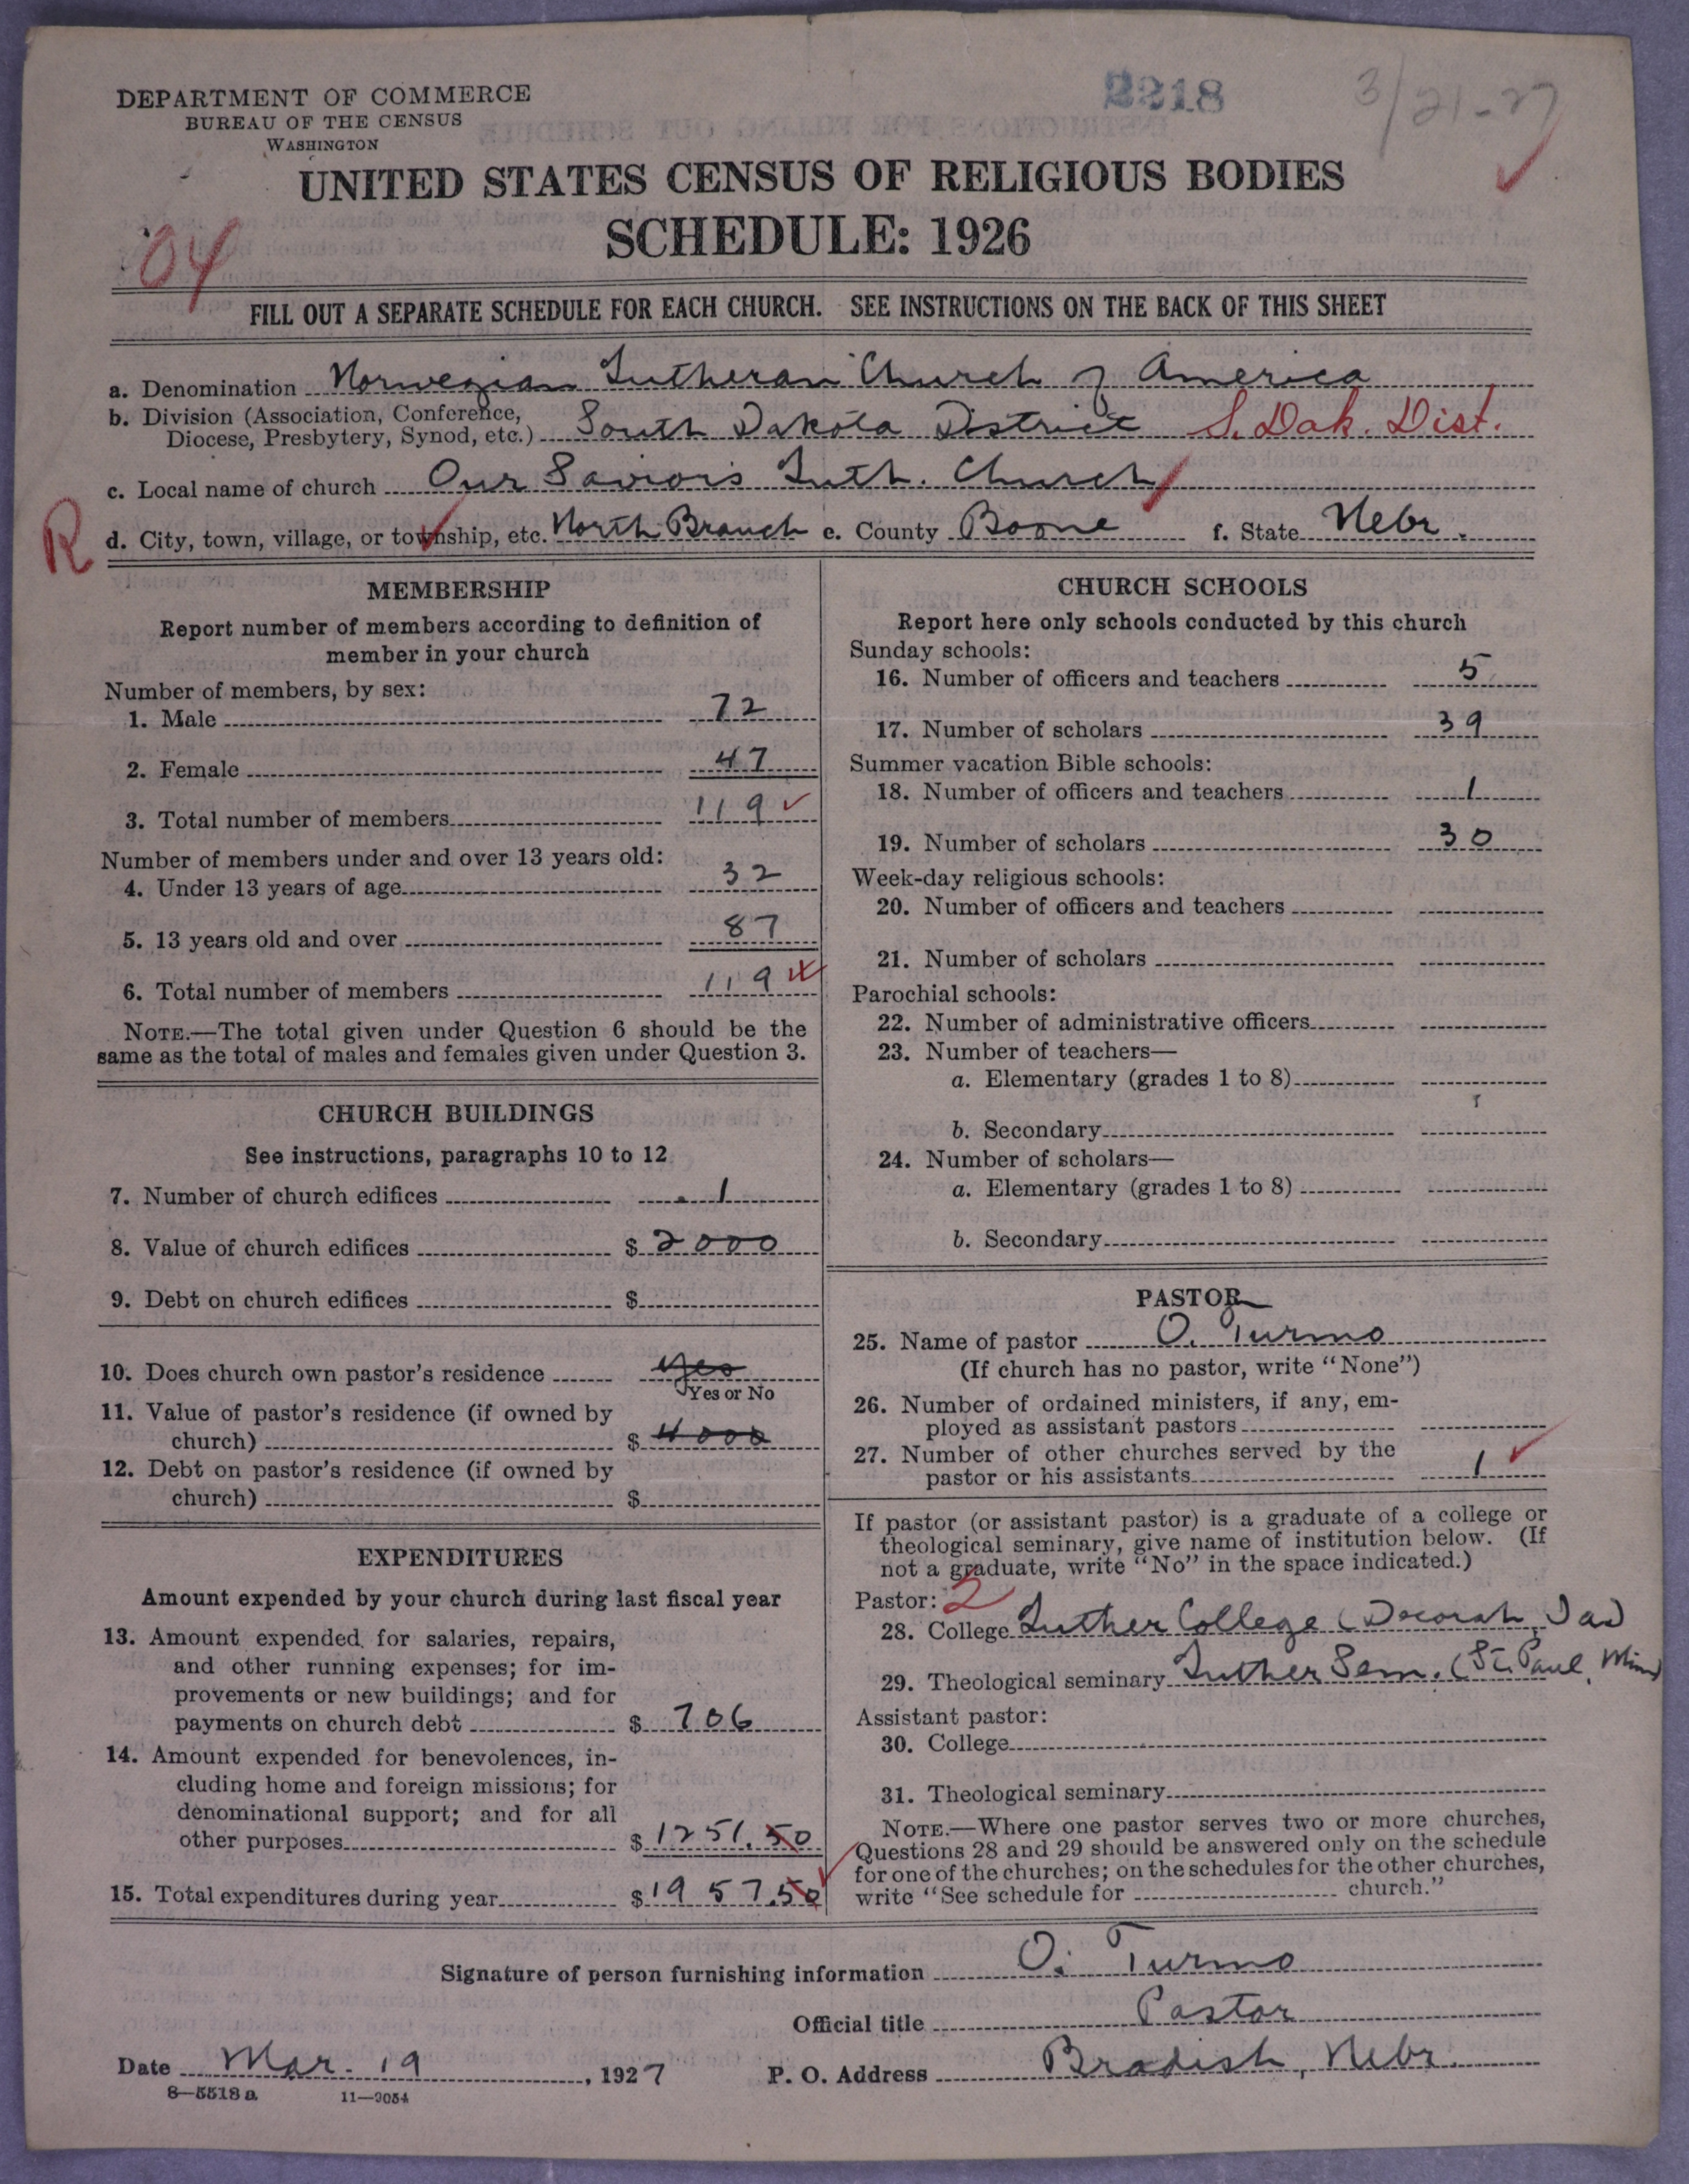 DEPARTMENT OF COMMERCE
BUREAU OF THE CENSUS
WASHINGTON
2218
3/21-27
UNITED STATES CENSUS OF RELIGIOUS BODIES
SCHEDULE: 1926
04
FILL OUT A SEPARATE SCHEDULE FOR EACH CHURCH. SEE INSTRUCTIONS ON THE BACK OF THIS SHEET
a. Denomination Norwegian Lutheran Church of America
b. Division (Association, Conference,
Diocese, Presbytery, Synod, etc.) South Dakota District S. Dak. Dist.
c. Local name of church Our Savior's Luth. Church
R
d. City, town, village, or township, etc. North Branch e. County Boone f. State Nebr.
MEMBERSHIP
Report number of members according to definition of
member in your church
Number of members, by sex:
1. Male 72
2. Female 47
3. Total number of members 119
Number of members under and over 13 years old:
4. Under 13 years of age 32
5. 13 years old and over 87
6. Total number of members 119
NOTE.—The total given under Question 6 should be the
same as the total of males and females given under Question 3.
CHURCH BUILDINGS
See instructions, paragraphs 10 to 12
7. Number of church edifices 1
8. Value of church edifices $ 2000
9. Debt on church edifices $
10. Does church own pastor's residence yes
Yes or No
11. Value of pastor's residence (if owned by
church) $ 4000
12. Debt on pastor's residence (if owned by
church) $
EXPENDITURES
Amount expended by your church during last fiscal year
13. Amount expended for salaries, repairs,
and other running expenses; for im-
provements or new buildings; and for
payments on church debt $ 706
14. Amount expended for benevolences, in-
cluding home and foreign missions; for
denominational support; and for all
other purposes $ 1251.50
15. Total expenditures during year $ 1957.50
CHURCH SCHOOLS
Report here only schools conducted by this church
Sunday schools:
16. Number of officers and teachers 5
17. Number of scholars 39
Summer vacation Bible schools:
18. Number of officers and teachers 1
19. Number of scholars 30
Week-day religious schools:
20. Number of officers and teachers
21. Number of scholars
Parochial schools:
22. Number of administrative officers
23. Number of teachers—
a. Elementary (grades 1 to 8)
b. Secondary
24. Number of scholars—
a. Elementary (grades 1 to 8)
b. Secondary
PASTOR
25. Name of pastor O. Turmo
(If church has no pastor, write "None")
26. Number of ordained ministers, if any, em-
ployed as assistant pastors
27. Number of other churches served by the
pastor or his assistants 1
If pastor (or assistant pastor) is a graduate of a college or
theological seminary, give name of institution below. (If
not a graduate, write "No" in the space indicated.)
Pastor: 2
28. College Luther College (Decorah, Ia)
29. Theological seminary Luther Sem. (St. Paul, Minn)
Assistant pastor:
30. College
31. Theological seminary
NOTE.—Where one pastor serves two or more churches,
Questions 28 and 29 should be answered only on the schedule
for one of the churches; on the schedules for the other churches,
write "See schedule for church."
Signature of person furnishing information O. Turmo
Official title Pastor
Date Mar. 19, 1927 P. O. Address Bradish, Nebr.
8—5518 a 11—9054